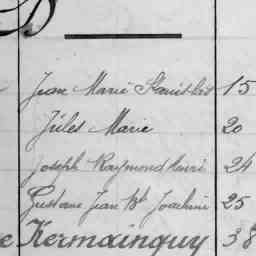 D
Jean Marie Stanislas 15
Jules Marie 20
Joseph Raymond Henri 24
Gustave Jean Bt Joachim 25
e Kermainguy 38